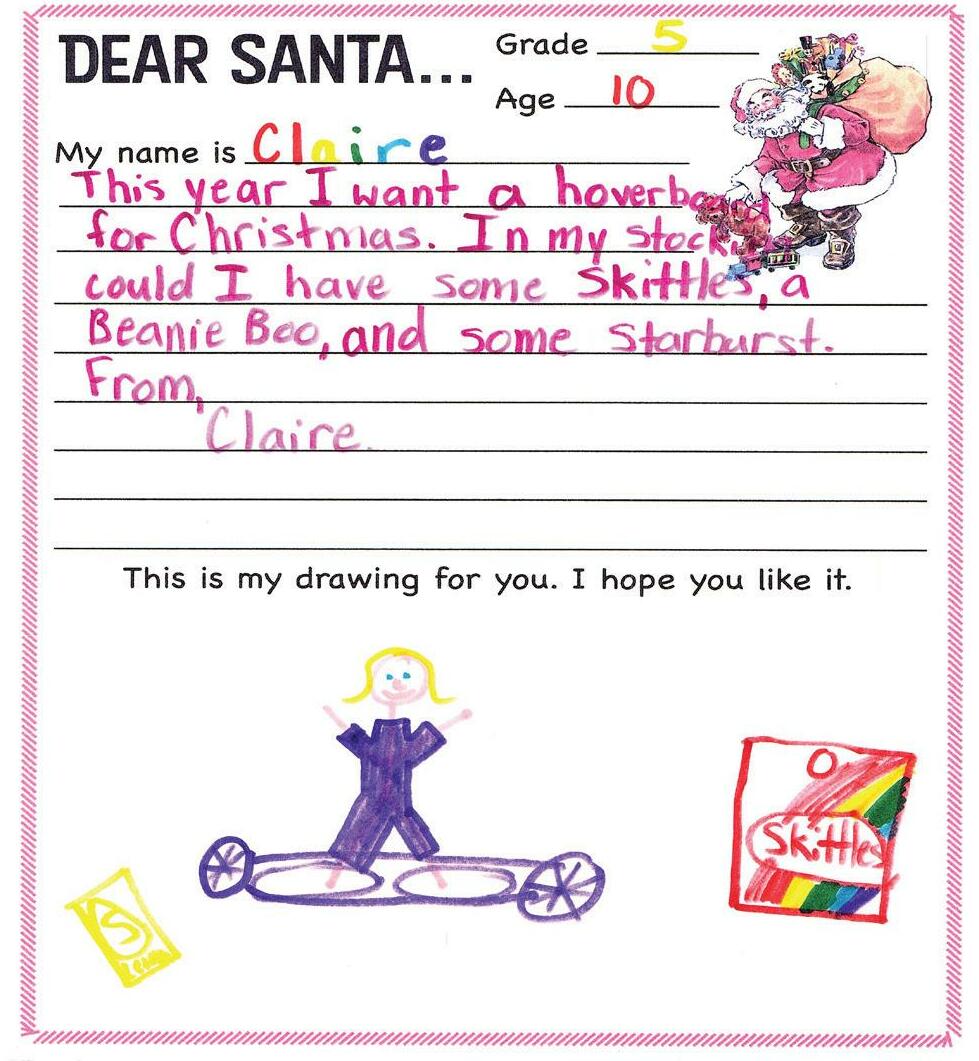 DEAR SANTA...
Grade 5
Age 10
My name is Claire
This year I want a hoverboard
for Christmas. In my stocking
could I have some Skittles, a
Beanie Boo, and some Starburst.
From,
Claire.
This is my drawing for you. I hope you like it.
Skittles
S